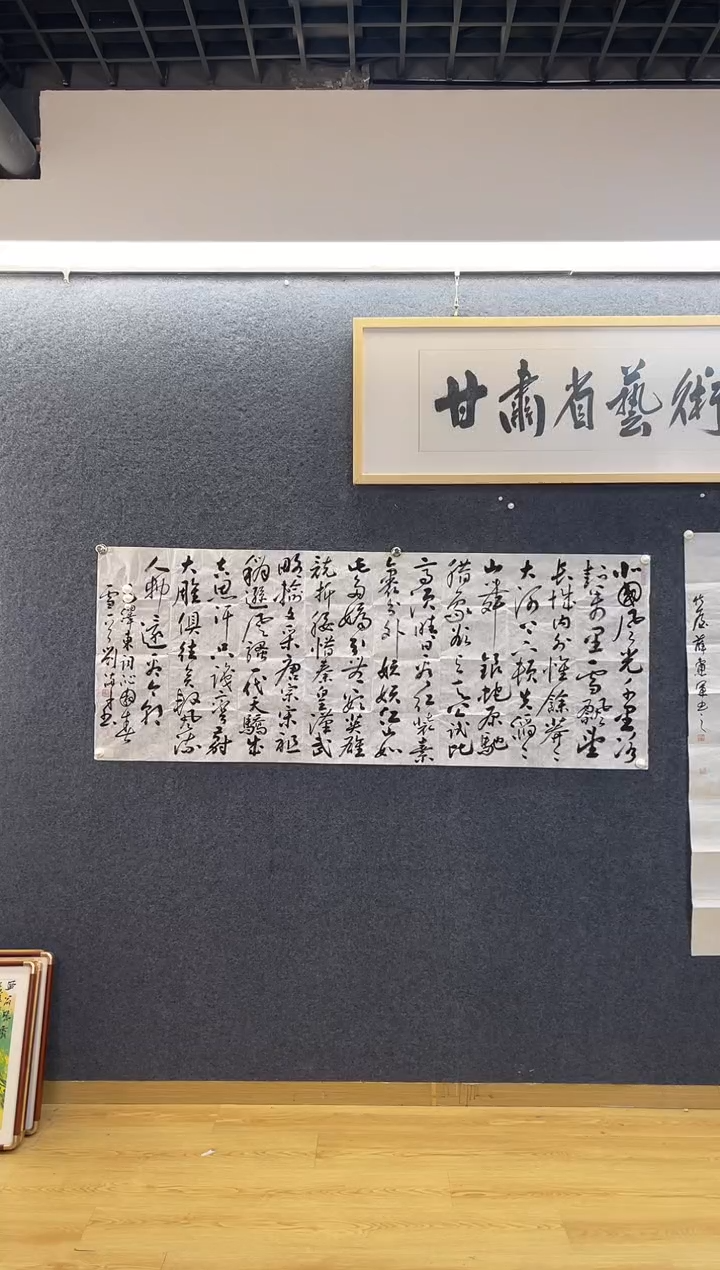 甘肅省藝術
北國風光千里冰
封萬里雪飄望
長城內外惟餘莽〻
大河上下頓失滔〻
山舞銀蛇原馳
蜡象欲与天公試比
高須晴日看紅裝素
裹分外妖嬈江山如
此多嬌引無數英雄
競折腰惜秦皇漢武
略輸文采唐宗宋祖
稍遜風騷一代天驕成
吉思汗只識彎弓射
大雕俱往矣數風流
人物還看今朝
毛澤東詞沁園春
雪 劉海